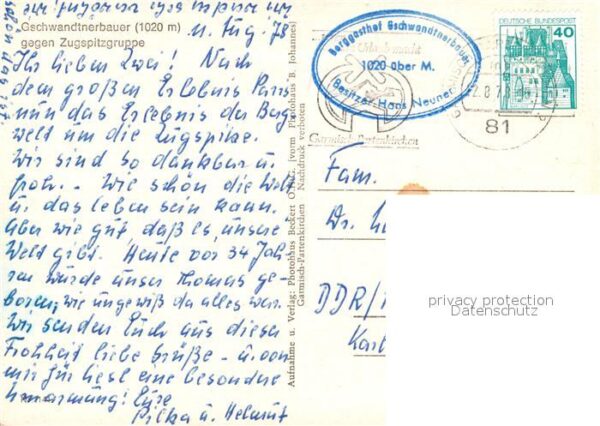 Gschwandtnerbauer (1020 m)
gegen Zugspitzgruppe
11. Aug. 78
Ihr lieben Zwei! Nach
dem großen Erlebnis Paris
nun das Erlebnis der Berg
welt um die Zugspitze.
Wir sind so dankbar u.
froh. - Wie schön die Welt
u. das Leben sein kann.
Aber wie gut, daß es unsere
Welt gibt. Heute vor 34 Jah
ren wurde unser Thomas ge-
boren, wie ungewiß da alles war.
Wir senden Euch aus dieser
Frohheit liebe Grüße - u. von
mir für Liesl eine besondere
Umarmung! Eure
u. Helmut
Aufnahme u. Verlag: Photohaus Beckert (vorm. Photohaus B. Johannes)
Garmisch-Partenkirchen Nachdruck verboten
Berggasthof Gschwandtnerbauer
1020 über M.
Besitzer Hans Neuner
Urlaub macht
Garmisch-Partenkirchen
DEUTSCHE BUNDESPOST
40
81
Fam.
Dr.
DDR/
privacy protection
Datenschutz